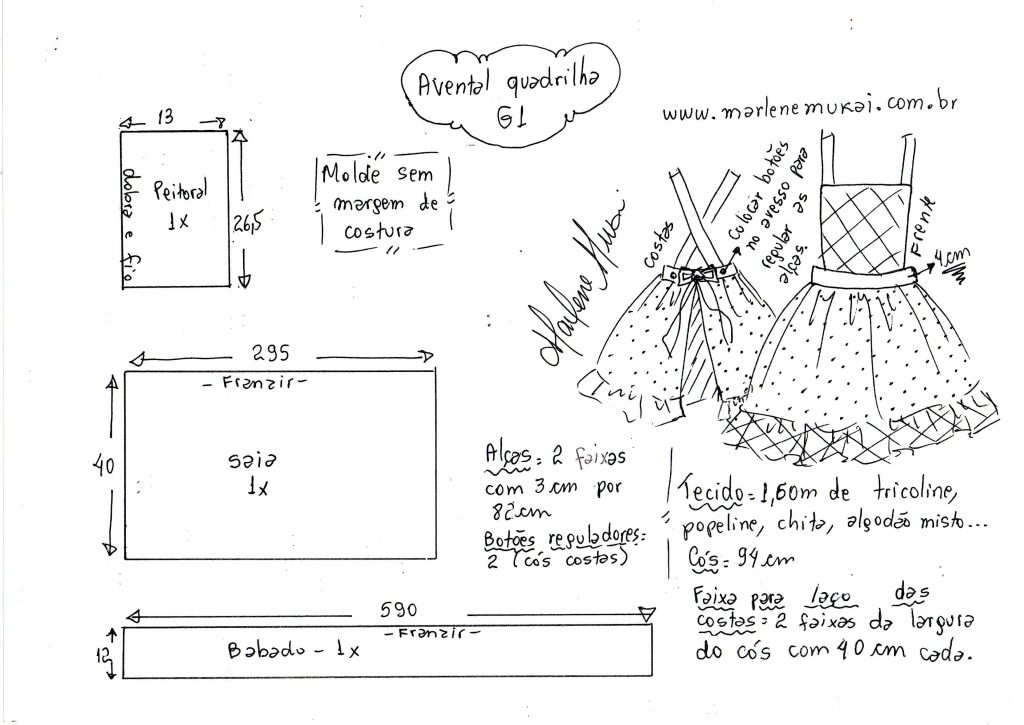 Avental quadrilha
G1
www.marlenemukai.com.br
13
dobra e fio
Peitoral
1x
26,5
Molde sem
margem de
costura
Marlene Mukai
costas
colocar botões
no avesso para
regular as
alças.
Frente
4cm
295
- Franzir -
40
saia
1x
Alças = 2 faixas
com 3 cm por
82 cm
Botões reguladores =
2 (cós costas)
Tecido = 1,60m de tricoline,
popeline, chita, algodão misto...
Cós = 94 cm
Faixa para laço das
costas = 2 faixas da largura
do cós com 40 cm cada.
590
- Franzir -
12
Babado - 1x